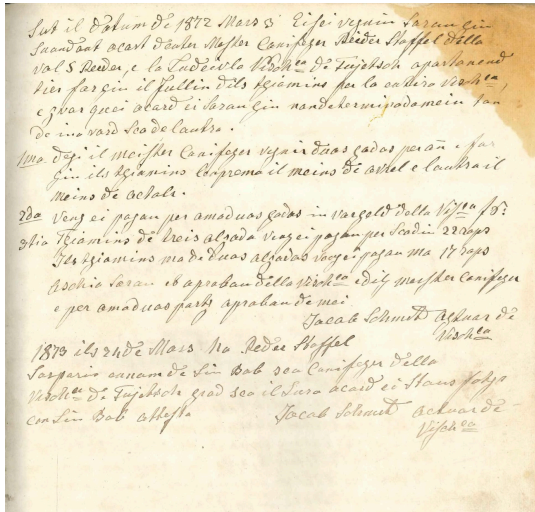 Sut il datum de 1872 Mars 3 Ei sei vegnin Saran gin
Suandont acart denter Meister Canifeger Reider Staffel della
val S Reeder, e la Ludeivla Visch.ea de Tujetsch apartenend
tier far gin il fullin dils tgiamins per la entira Visch.ea,
e zvar quei acard ei Saran gin nundeterminadamein tan
de ina vard sco de lautra.
1ma de gi il meister Canifeger vegnir duas gadas per añ e far
gin ils tgiamins l'emprema il meins de avrel e lautra il
meins de octobr.
2da veng ei pagau per amaduas gadas in vargold della Visch.ea fr.
3tia Tgiamins de treis alzada veng ei pagau per Scadin 22 raps
Ils tgiamins ma di duas alzadas veng ei pagau ma 17 raps
Aschia Saran eb aproban della Visch.ea e dil meister Canifeger
e per amaduas parts aproban de mei
Jacob Schmet Actuar de
Visch.ea
1873 ils 24 de Mars ha Reder Staffel
Gasparin ennam de Siu Bab sco Canifeger della
Visch.ea de Tujetsch grad sco il Sura acard ei Staus fatgs
con Siu Bab attesta Jacob Schmet actuar de
Visch.ea